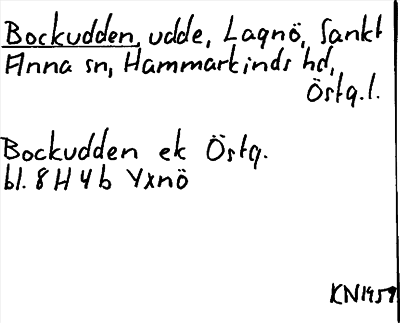 Bockudden, udde, Lagnö, Sankt
Anna sn, Hammarkinds hd,
Östg.l.
Bockudden ek Östg.
bl. 8H4b Yxnö
KN1959